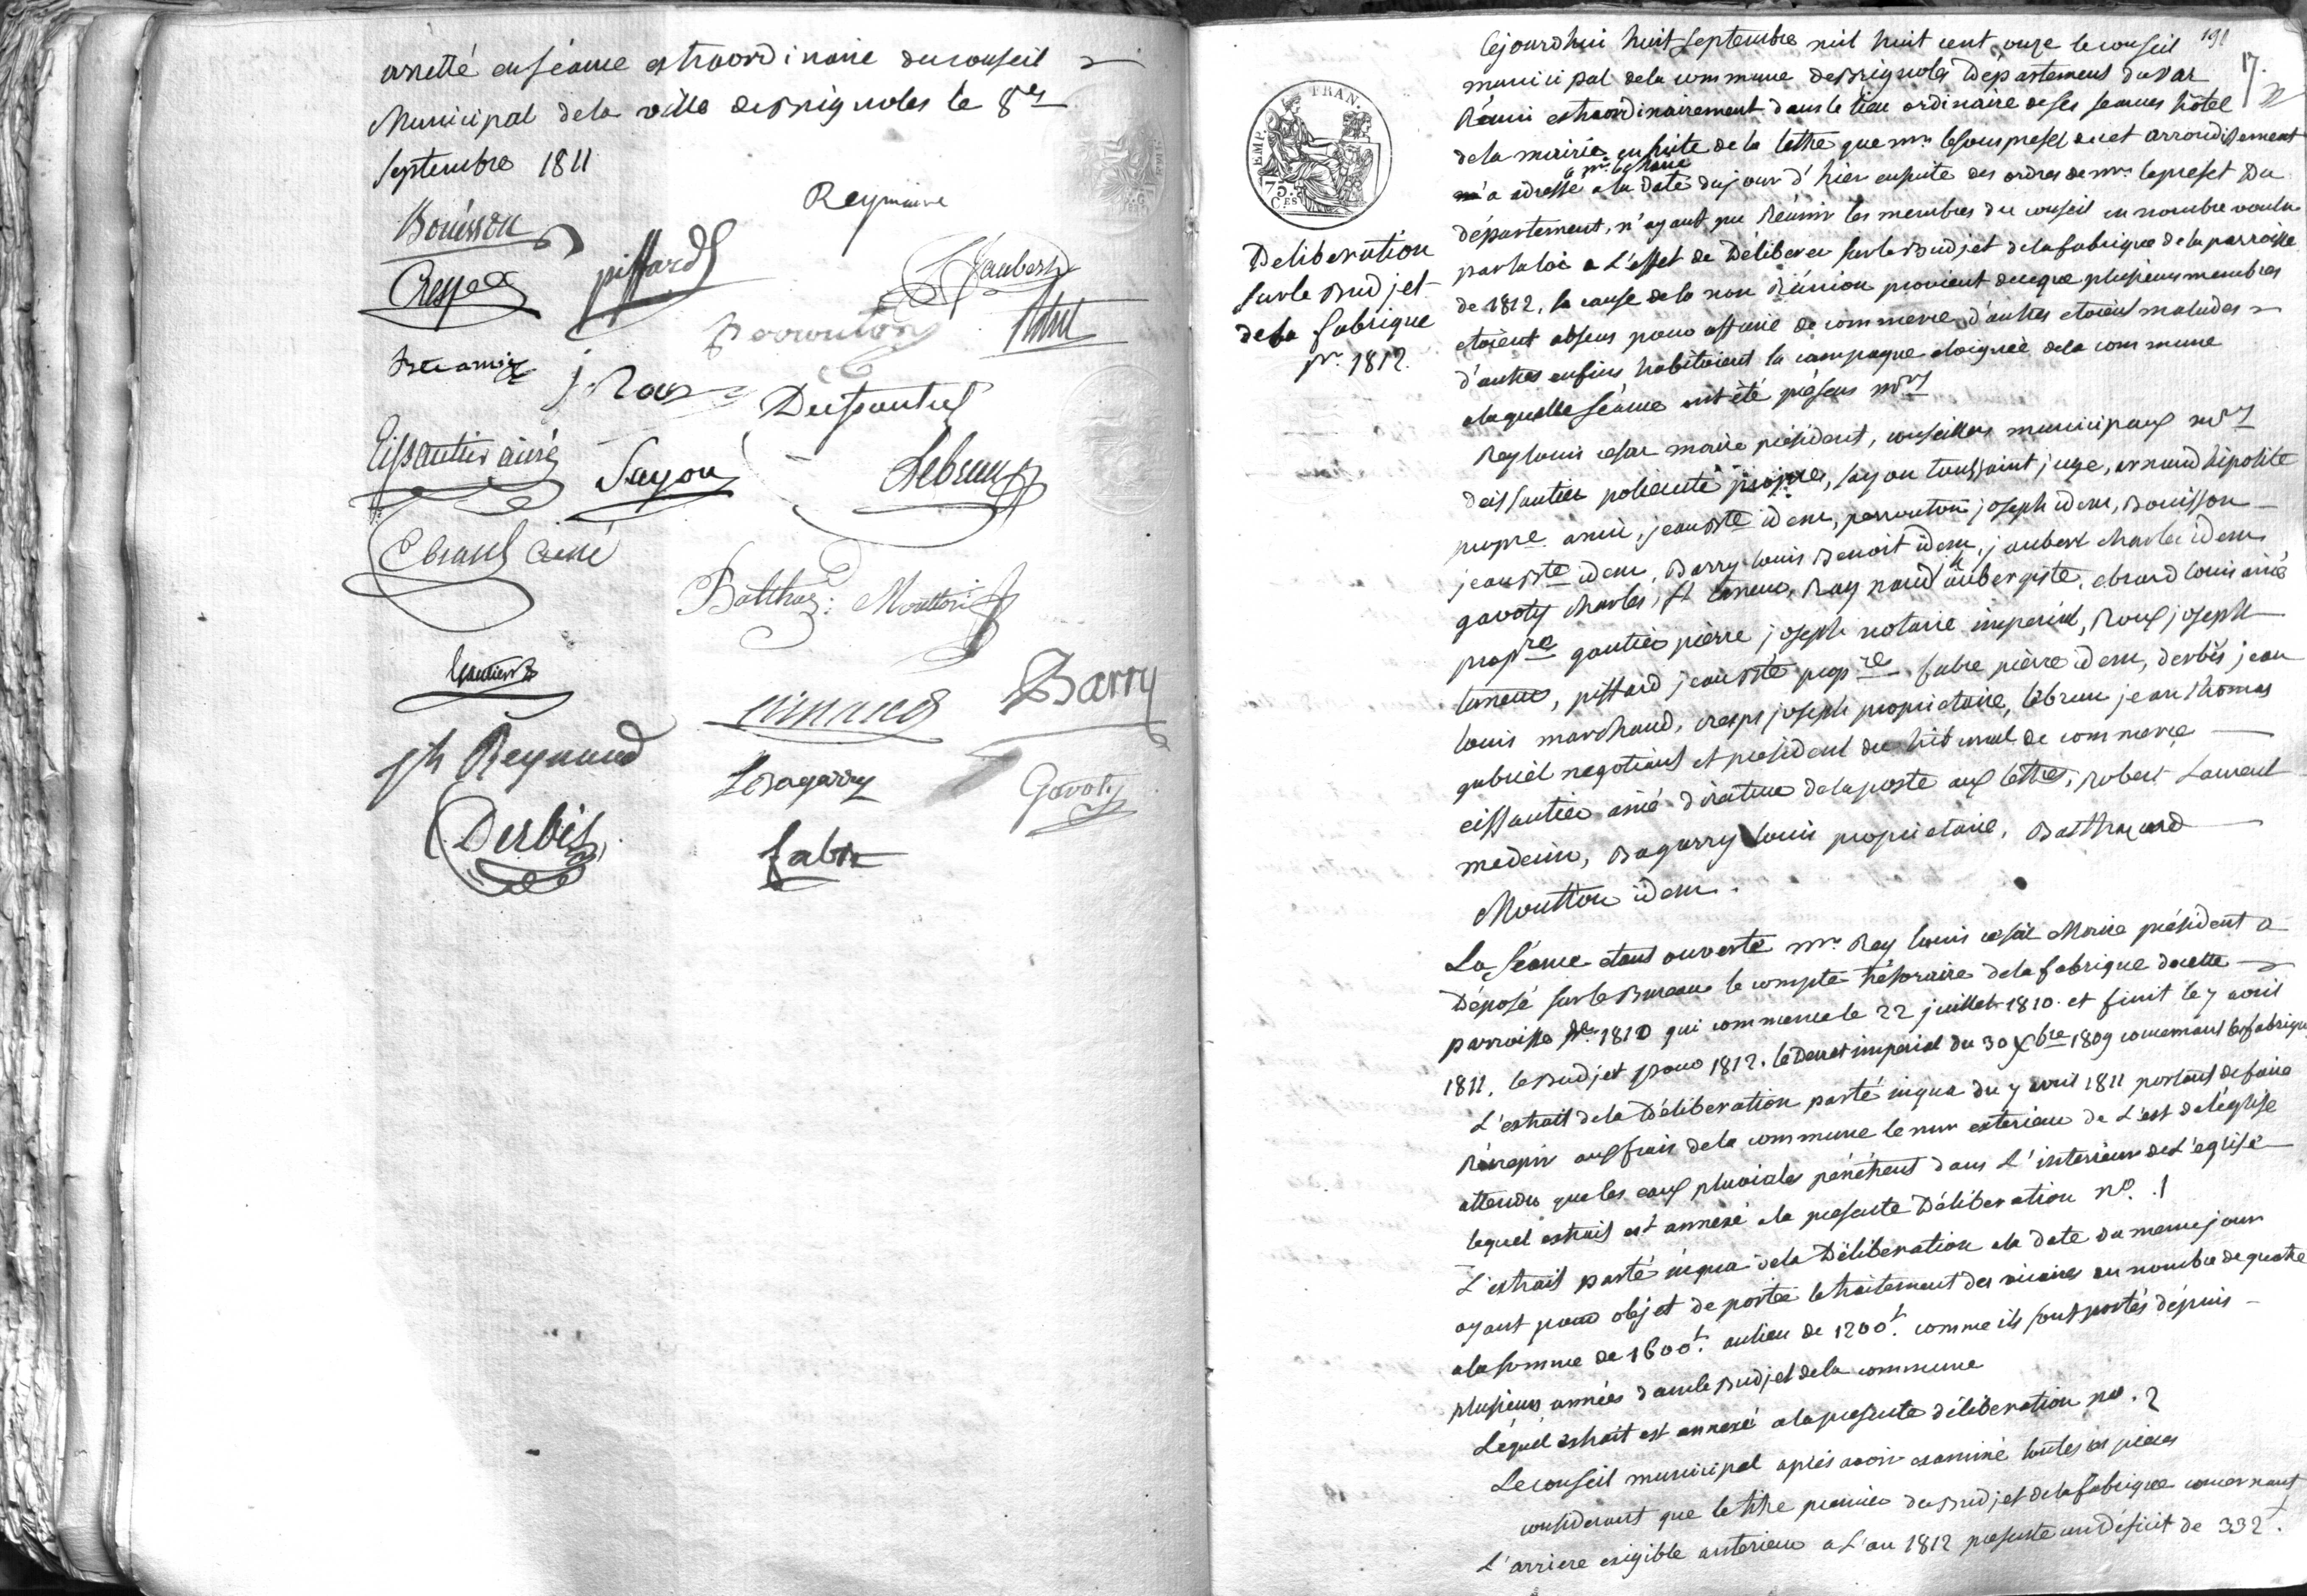 arretté en séance extraordinaire du conseil
Municipal de la ville de Brignoles le 8
septembre 1811
Reynaud
Bouisson
piffard
Jaubert
Cresp
perrouton
j Roux
Deissautier
Eissautier ainé
Sayou
Lebrun
Ebrard ainé
Balthaz: Moutton
Gautier
Barry
jh Reynaud
LBagarry
Gavoty
Derbès
fabre
191
17.
EMP. FRAN.
75. C.ES
Deliberation
sur le Budjet
de la fabrique
pr. 1812.
Cejourd'hui huit septembre mil huit cent onze le conseil
municipal de la commune de Brignoles Département du Var
Réuni extraordinairement dans le lieu ordinaire de ses seances hôtel
de la mairie en suite de la lettre que mr. le souspréfet de cet arrondissement
à mr. le maire
m'a adressé a la date du jour d'hier ensuite des ordres de mr. le prefet Du
département, n'ayant pu Réunir les membres du conseil en nombre voulu
par la loi a L'effet de Déliberer sur le Budjet de la fabrique de la parroisse
de 1812, la cause de la non Réunion provient de ce que plusieurs membres
etoient absens pour affaire de commerce, d'autres etoient malades
d'autres enfins habitoient la campagne eloignée de la commune
a laquelle séance ont été présens mrs
Rey louis cesar maire président, conseillers municipaux mrs
deissautier policarte propre, sayou toussaint juge, arnaud hipolite
propre amic, jean Bte idem, perrouton joseph idem, Bouisson
jean Bte idem, Barry louis Benoit idem, jaubert charles idem
gavoty charles, ft taneur, Raynaud jh aubergiste, ebrard louis ainé
propre gautier pierre joseph notaire imperial, Roux joseph
taneur, piffard jean Bte propre fabre pièrre idem, derbès jean
louis marchand, cresps joseph proprietaire, lebrun jean thomas
gabriel negotiant et president du tribunal de commerce
eissautier ainé directeur de la poste aux lettres, Robert Laurent
medecin, Bagarry louis proprietaire, Balthazard
Moutton idem.
La séance etant ouverte mr. Rey louis cesar Maire président a
Déposé sur le Bureau le compte trésoraire de la fabrique de cette
parroisse de 1810 qui commence le 22 juillet 1810. et finit le 7 avril
1811, le Budjet pour 1812. le Decret imperial du 30 Xbre 1809 concernant les fabriques
L'extrait de la Déliberation parté inqua du 7 avril 1811 portant de faire
Récrepir aux frais de la commune le mur exterieur de L'est de l'église
attendu que les eaux pluviales pénétrent dans L'interieur de L'église
lequel extrait est annexé a la presente Déliberation no. 1
L'extrait parté inqua de la Déliberation a la date du meme jour
ayant pour objet de porter le traitement des vicaires au nombre de quatre
a la somme de 1600f. au lieu de 1200f. comme ils sont portés dépuis
plusieurs années dans le Budjet de la commune
Lequel extrait est annexé a la presente déliberation no. 2
Le conseil municipal après avoir examiné toutes ces pièces
considerant que le titre premier du Budjet de la fabrique concernant
L'arriere exigible anterieur a L'an 1812 presente un Déficit de 332f.